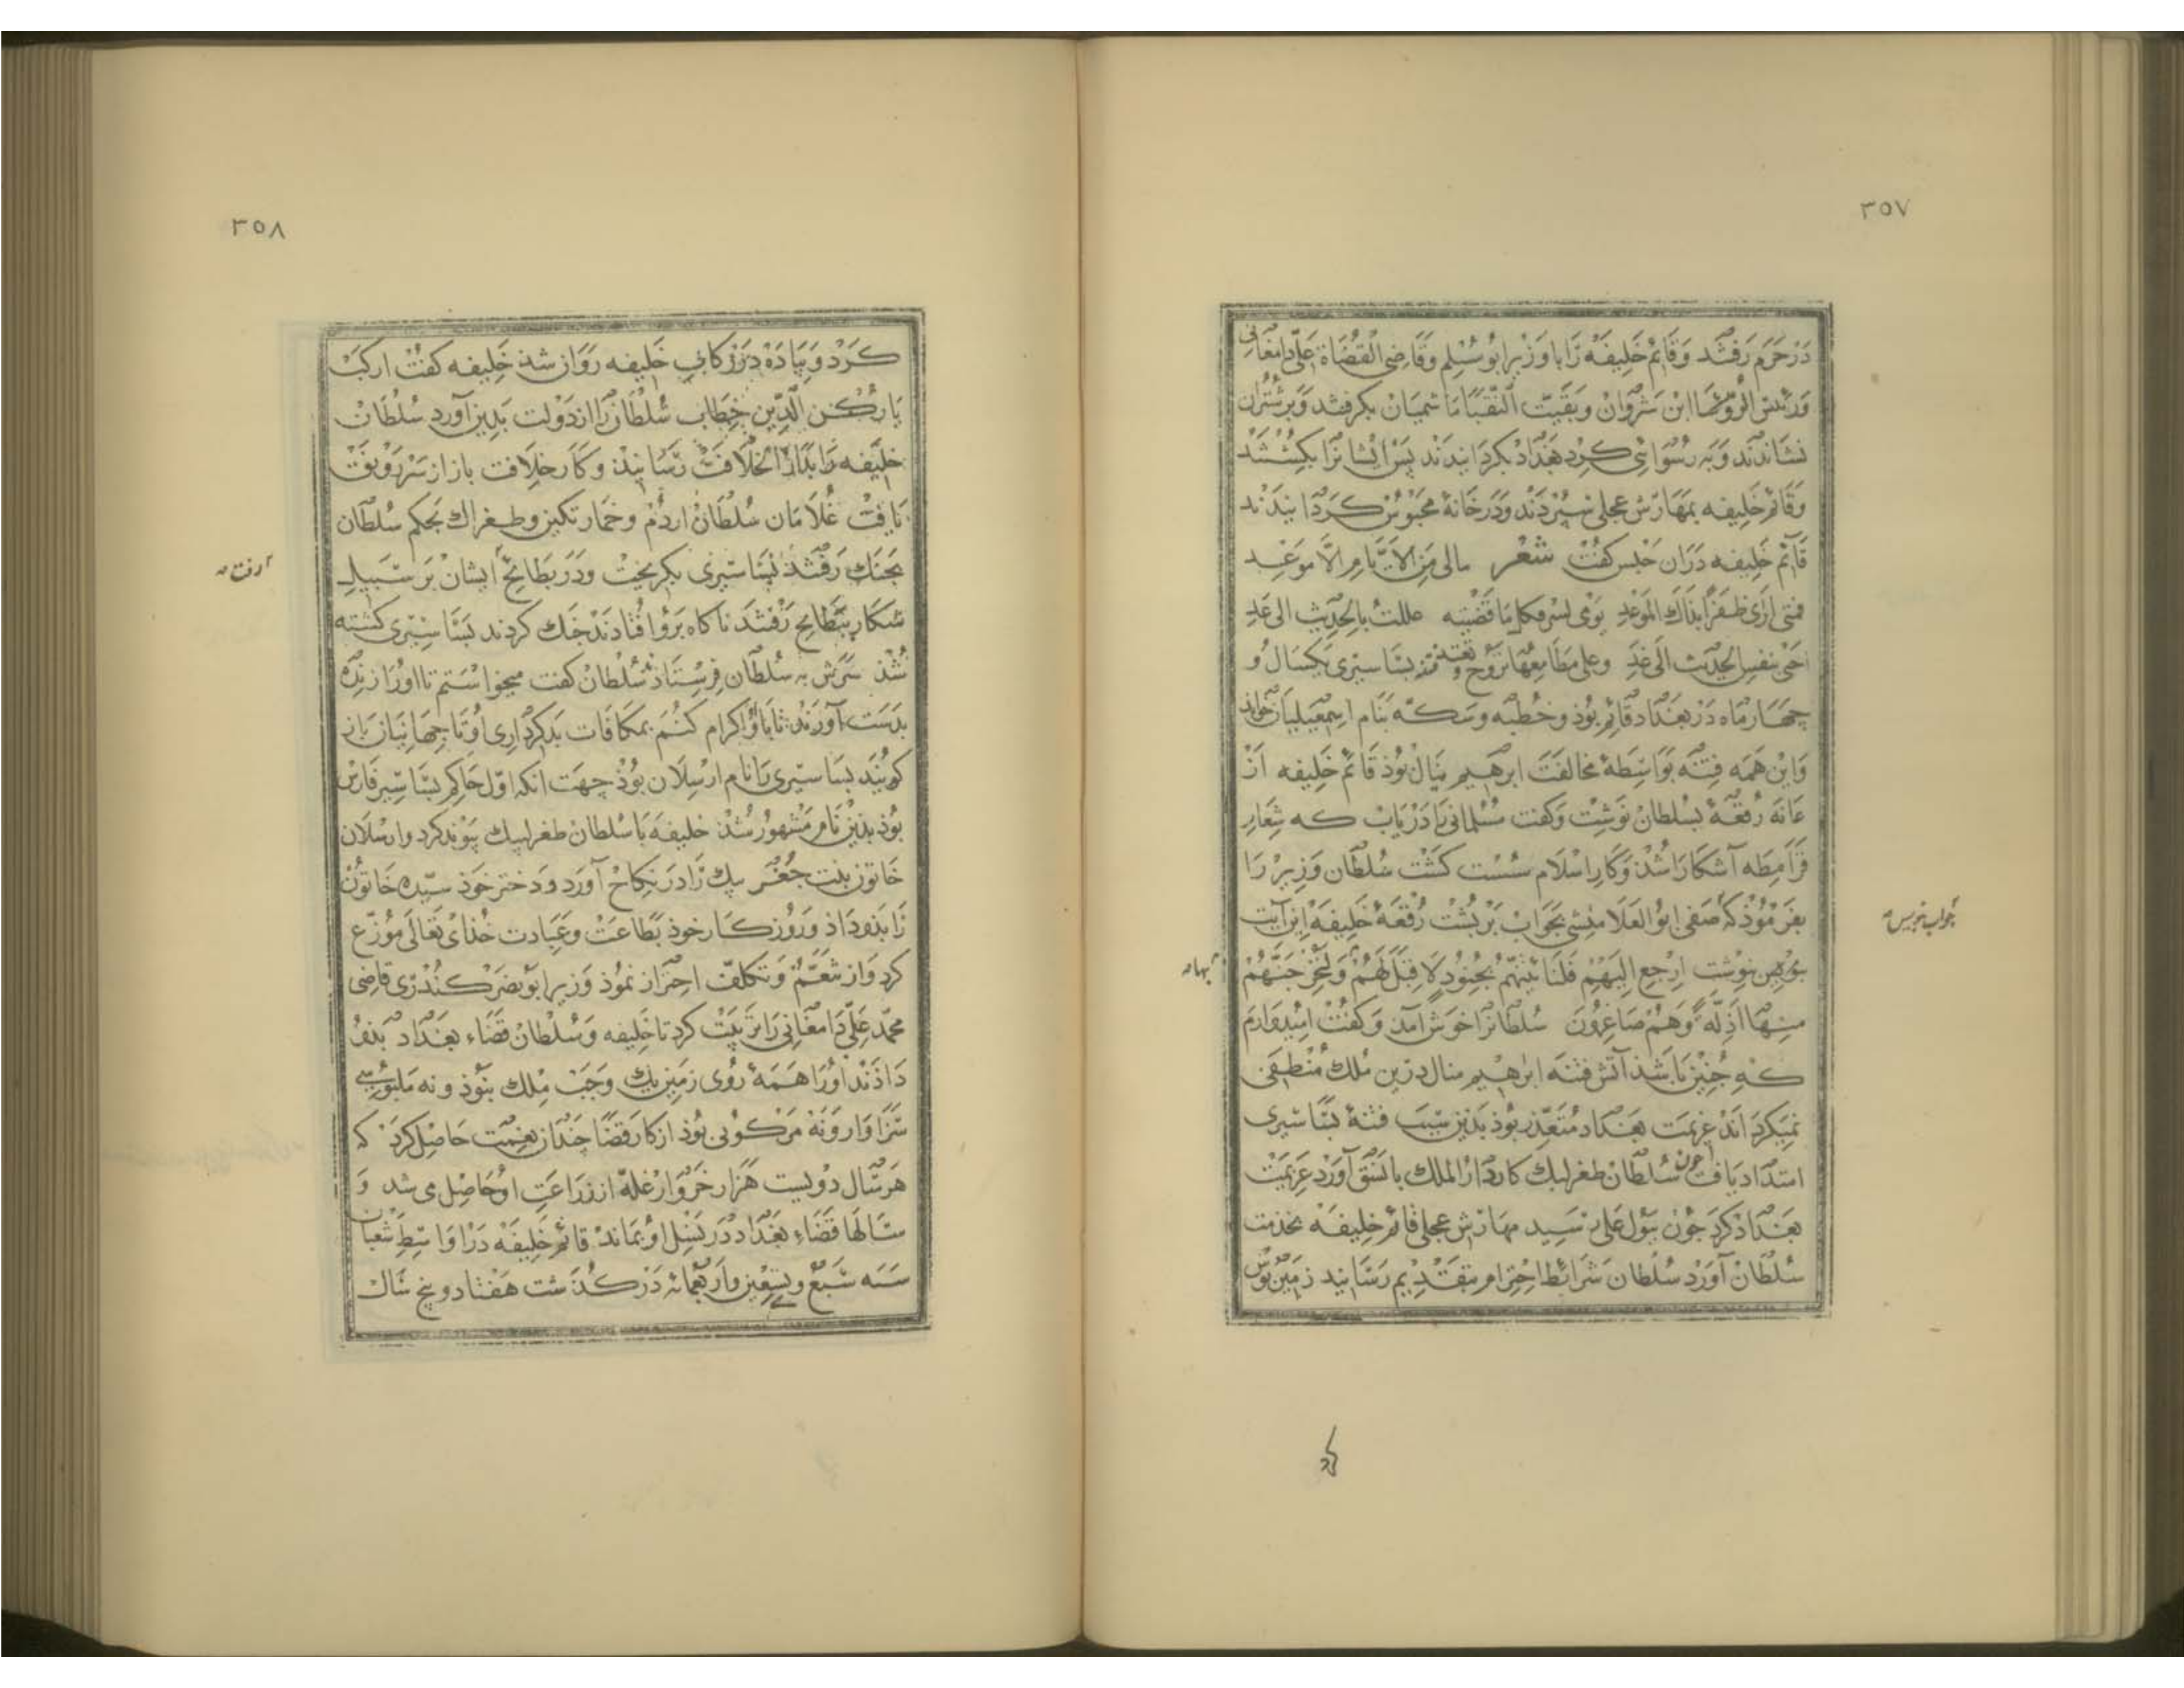 ۳۵۷
در حرم رفتند و قائم خلیفه را با وزیر ابو مسلم و قاضی القضاة علی دامغانی
و رئیس الرؤسا ابن شروان و بقیت النقبا هاشمیان بکرفتند و بر شتران
نشاندند و به رسوائی کرد بغداد بکردانیدند پس ایشانرا بکشتند
و قائم خلیفه بمهارش عجلی سپردند و در خانهٔ محبوس کردانیدند
قائم خلیفه دران حبس کفت شعر مالی من الایام الا موعد
فمتی اری ظفرا بذاک الموعد یومی یسر فکلما قضیته عللت بالحدیث الی غد
احی بنفس الحدیث الی غد وعلی مطامعها تروح وتغتدی بساسیری یکسال و
چهار ماه در بغداد قائم بوذ و خطبه و سکه بنام اسمعیلیان خواند
و این همه فتنه بواسطهٔ مخالفت ابرهیم ینال بوذ قائم خلیفه از
عانه رقعهٔ بسلطان نوشت و کفت مسلمانی را دریاب که شعار
قرامطه آشکارا شذ و کار اسلام سست کشت سلطان وزیر را
بفرموذ که صفی ابو العلا منشی بجواب بر پشت رقعهٔ خلیفه این آیت
نوشت ارجع الیهم فلناتینهم بجنود لا قبل لهم ولنخرجنهم
منها اذلة وهم صاغرون سلطانرا خوش آمذ و کفت امیدوارم
که جنین باشذ آتش فتنه ابرهیم ینال درین ملک منطفی
نمیکرد اند عزیمت بغداد متعذر بوذ بذین سبب فتنهٔ بساسیری
امتداد یافت چون سلطان طغرلبک کار دار الملک با نسق آورد عزیمت
بغداد کرد جون رسید مهارش عجلی قائم خلیفه بخدمت
سلطان آورد سلطان شرائط احترام بتقدیم رسانید زمین بوس
جواب بنویس
آنها
کرد
۳۵۸
کرد و پیاده در رکاب خلیفه روان شذ خلیفه کفت ارکب
یا رکن الدین خطاب سلطانرا از دولت بدین آورد سلطان
خلیفه را بدار الخلافت رسانیذ و کار خلافت باز از سر رونق
یافت غلامان سلطان اردم و خمارتکین و طغراک بحکم سلطان
بجنک رفتند بساسیری بکریخت و در بطایح ایشان بر سبیل
شکار ببطایح رفتند ناکاه برو افتادند جنک کردند بساسیری کشته
شذ سرش به سلطان فرستادند سلطان کفت میخواستم تا اورا زنده
بدست آورند تا با او اکرام کنم بمکافات بدکرداری او تا جهانیان باز
کویند بساسیری را نام ارسلان بوذ جهت انکه اول حاکم بساسیر فارس
بوذ بذین نام مشهور شذ خلیفه با سلطان طغرلبک پیوند کرد و ارسلان
خاتون بنت جغر بیک را در نکاح آورد و دختر خوذ سیده خاتون
را بذو داذ و روزکار خوذ بطاعت و عبادت خذای تعالی موزع
کرد و از تنعم و تکلف احتراز نموذ وزیر ابو نصر کندری قاضی
محمد علی دامغانی را تربیت کرد تا خلیفه و سلطان قضاء بغداد بذو
داذند اورا همهٔ روی زمین یک وجب ملک نبوذ و نه ملبوسی
سزاوار و نه مرکوبی بوذ از کار قضا جندان نعمت حاصل کرد که
هر سال دویست هزار خروار غله از زراعت او حاصل می شد و
سالها قضاء بغداد در نسل او بماند قائم خلیفه در اواسط شعبان
سنه سبع وستین واربعمائه درکذشت هفتاد و پنج سال